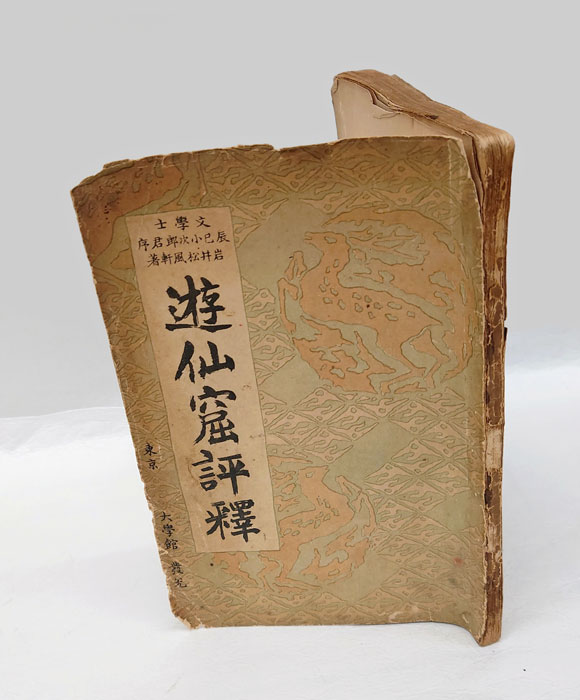 文學士
辰巳小次郎君序
岩井松風軒著
遊仙窟評釋
東京
大學館 發兌